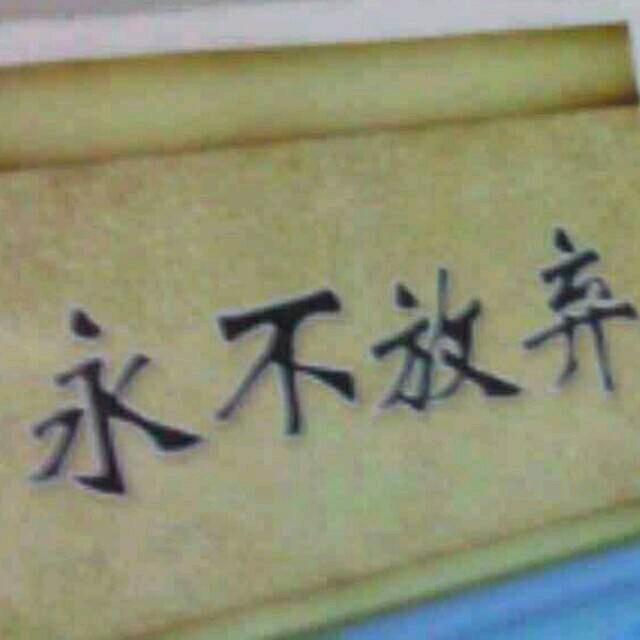 永不放弃